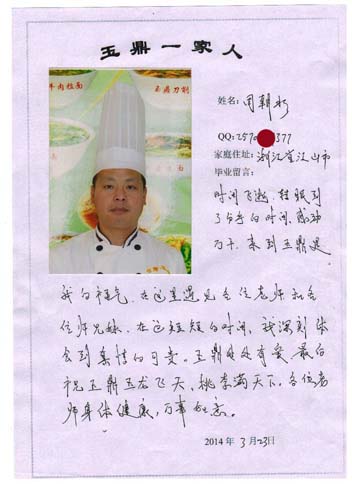 玉鼎一家人
牛肉拉面
玉鼎刀削
姓名:周朝水
QQ:2570 377
家庭住址:浙江省江山市
毕业留言:
时间飞逝,转眼到
了分手的时间,感动
万千,来到玉鼎是
我的福气,在这里遇见各位老师和各
位师兄妹,在这短短的时间,我深刻体
会到真情的可贵。玉鼎处处有爱,最后
祝玉鼎玉龙飞天,桃李满天下,各位老
师身体健康,万事如意。
2014年3月23日